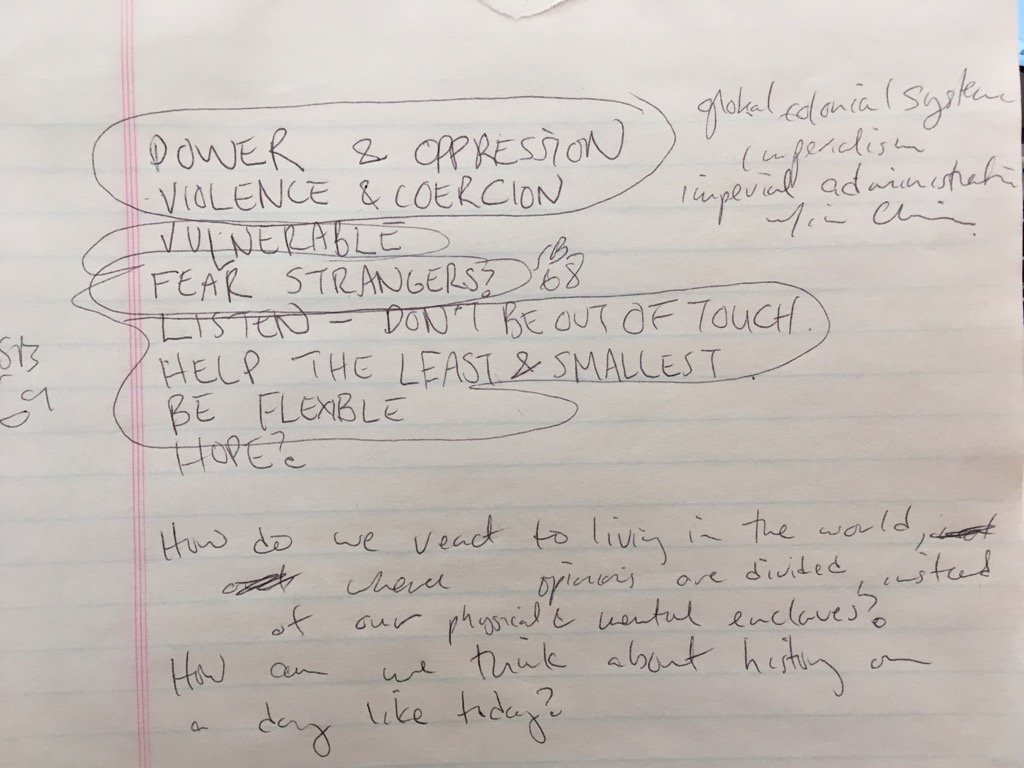 global colonial system
imperialism
imperial administration
w/in China
POWER & OPPRESSION
VIOLENCE & COERCION
VULNERABLE
FEAR STRANGERS?
68
LISTEN - DON'T BE OUT OF TOUCH.
HELP THE LEAST & SMALLEST.
BE FLEXIBLE
HOPE?
How do we react to living in the world,
where opinions are divided, instead
of our physical & mental enclaves?
How can we think about history on
a day like today?